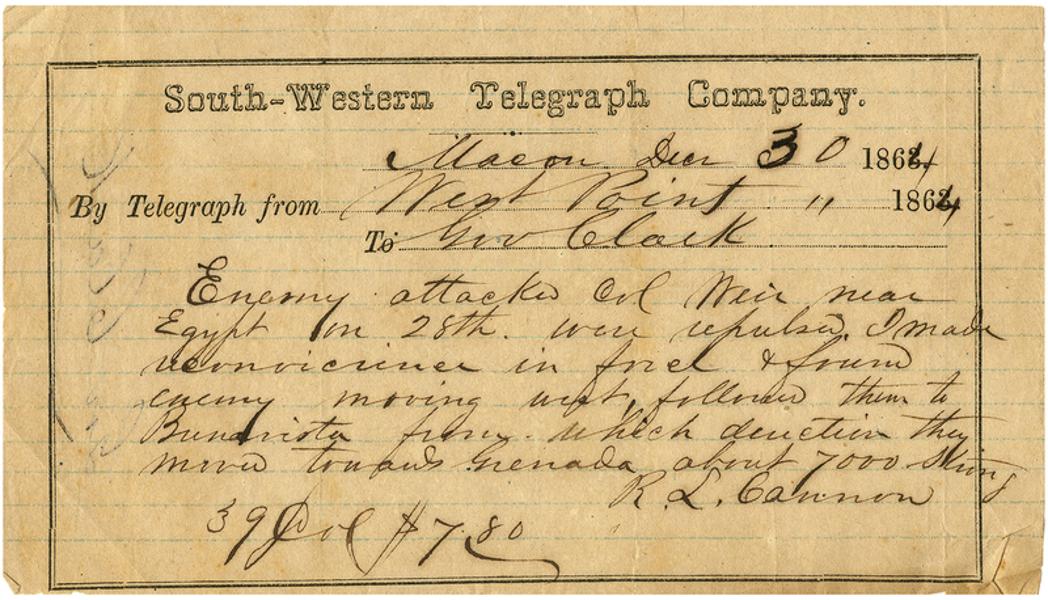 South-Western Telegraph Company.
Macon Decr 30 1864
By Telegraph from West Point " 1864
To Gov Clark
Enemy attacked Col Weir near
Egypt on 28th. were repulsed. I made
in force & found
enemy moving west, followed them to
Bunavista from which direction they
moved towards Grenada about 7000 strong
R. L. Cannon
39 Col $7.80